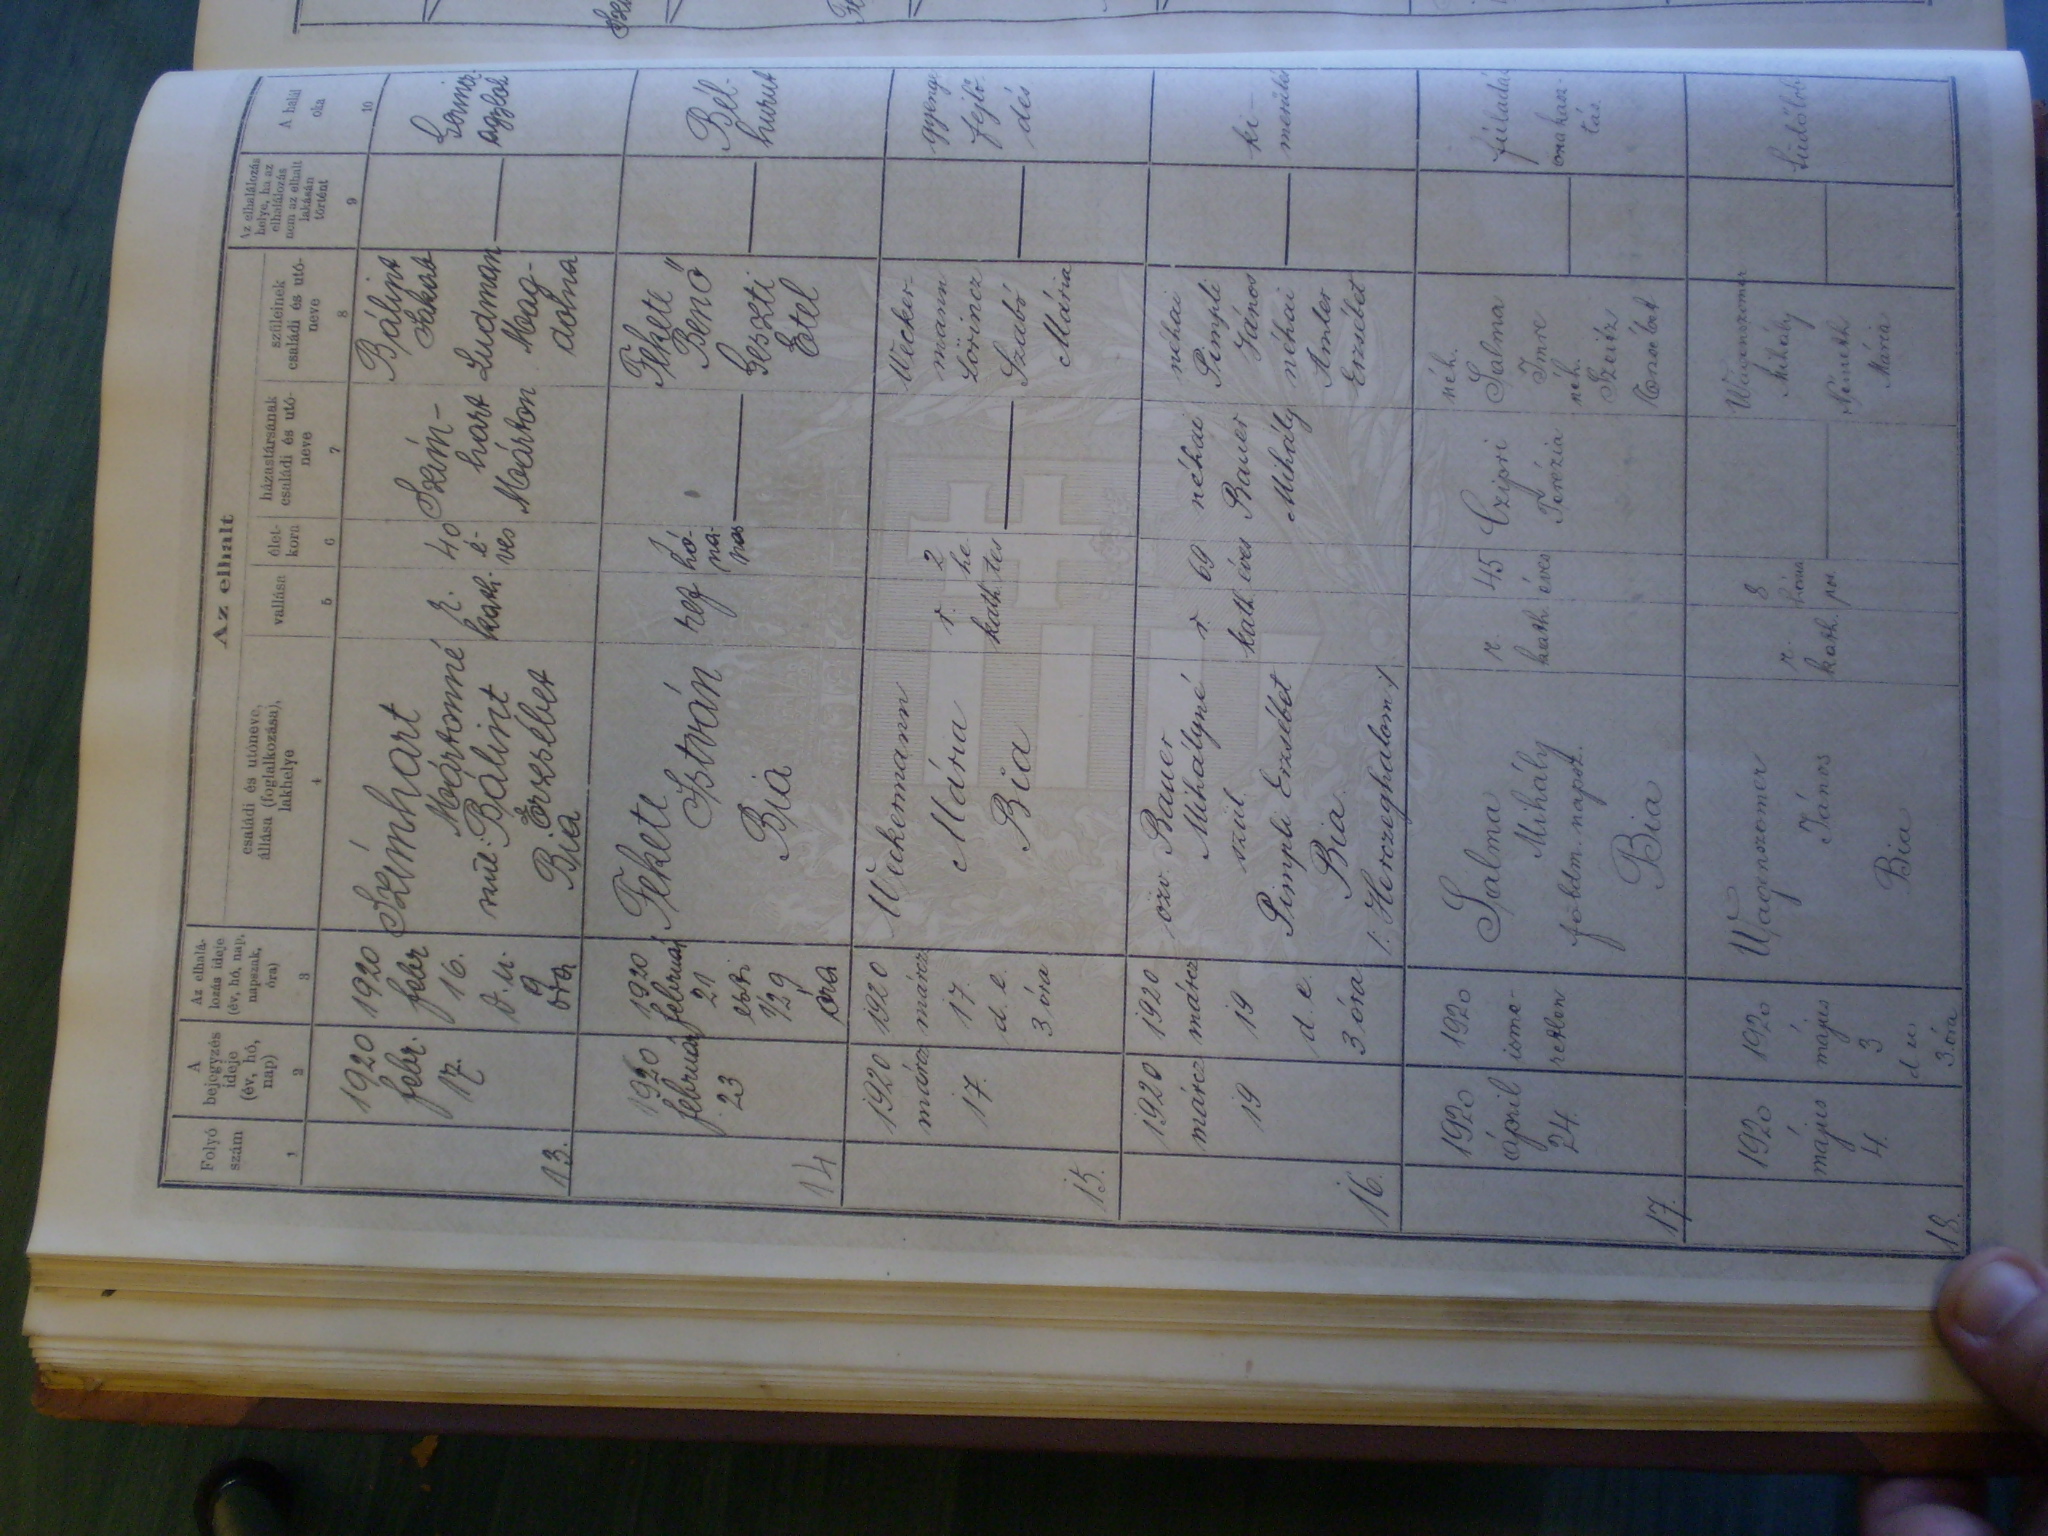 Az elhalt
Folyó
szám
A
bejegyzés
ideje
(év, hó,
nap)
Az elhalá-
lozás ideje
(év, hó, nap,
napszak,
óra)
családi és utóneve,
állása (foglalkozása),
lakhelye
vallása
élet-
kora
házastársának
családi és utó-
neve
szüleinek
családi és utó-
neve
Az elhalálozás
helye, ha az
elhalálozás
nem az elhalt
lakásán
történt
A halál
oka
1
2
3
4
5
6
7
8
9
10
13.
1920
febr.
17.
1920
febr
16.
d. u.
9
óra
Szémhart
Mártonné
szül: Bálint
Erzsébet
Bia
r.
kath.
40
é-
ves
hart
Márton
Bálint
Jakab
Ludman
Mag-
dolna
14
1920
február
23
1920
február
21
esti
1/2 9
óra
Fekete
István
Bia
ref
hó-
na-
pos
Fekete
Benő
Geszti
Etel
Bél-
hurut
15.
1920
márcz
17.
1920
márcz
17.
d. e.
3 óra
Weckermann
Mária
Bia
r.
kath.
2
he-
tes
Wecker-
mann
Lőrincz
Szabó
Mária
gyenge
fejlő-
dés
16.
1920
márcz
19
1920
márcz
19
d. e.
3 óra
özv. Bauer
Mihályné
szül.
Pimpli Erzsébet
Bia
/: Herczeghalom :/
r.
kath
69
éves
néhai
Bauer
Mihály
néhai
Pimpli
János
néhai
Amler
Erzsébet
ki-
merülés
17.
1920
április
24.
1920
isme-
retlen
Salma
Mihály
földm. napsz.
Bia
r.
kath.
45
éves
Czipri
Terézia
néh.
Salma
Imre
néh.
Erzsébet
fúladás
18.
1920
május
4.
1920
május
3
d. u.
3 óra
Wagenszomer
János
Bia
r.
kath.
8
hóna
pos
Mihály
Németh
Mária
tüdőlob